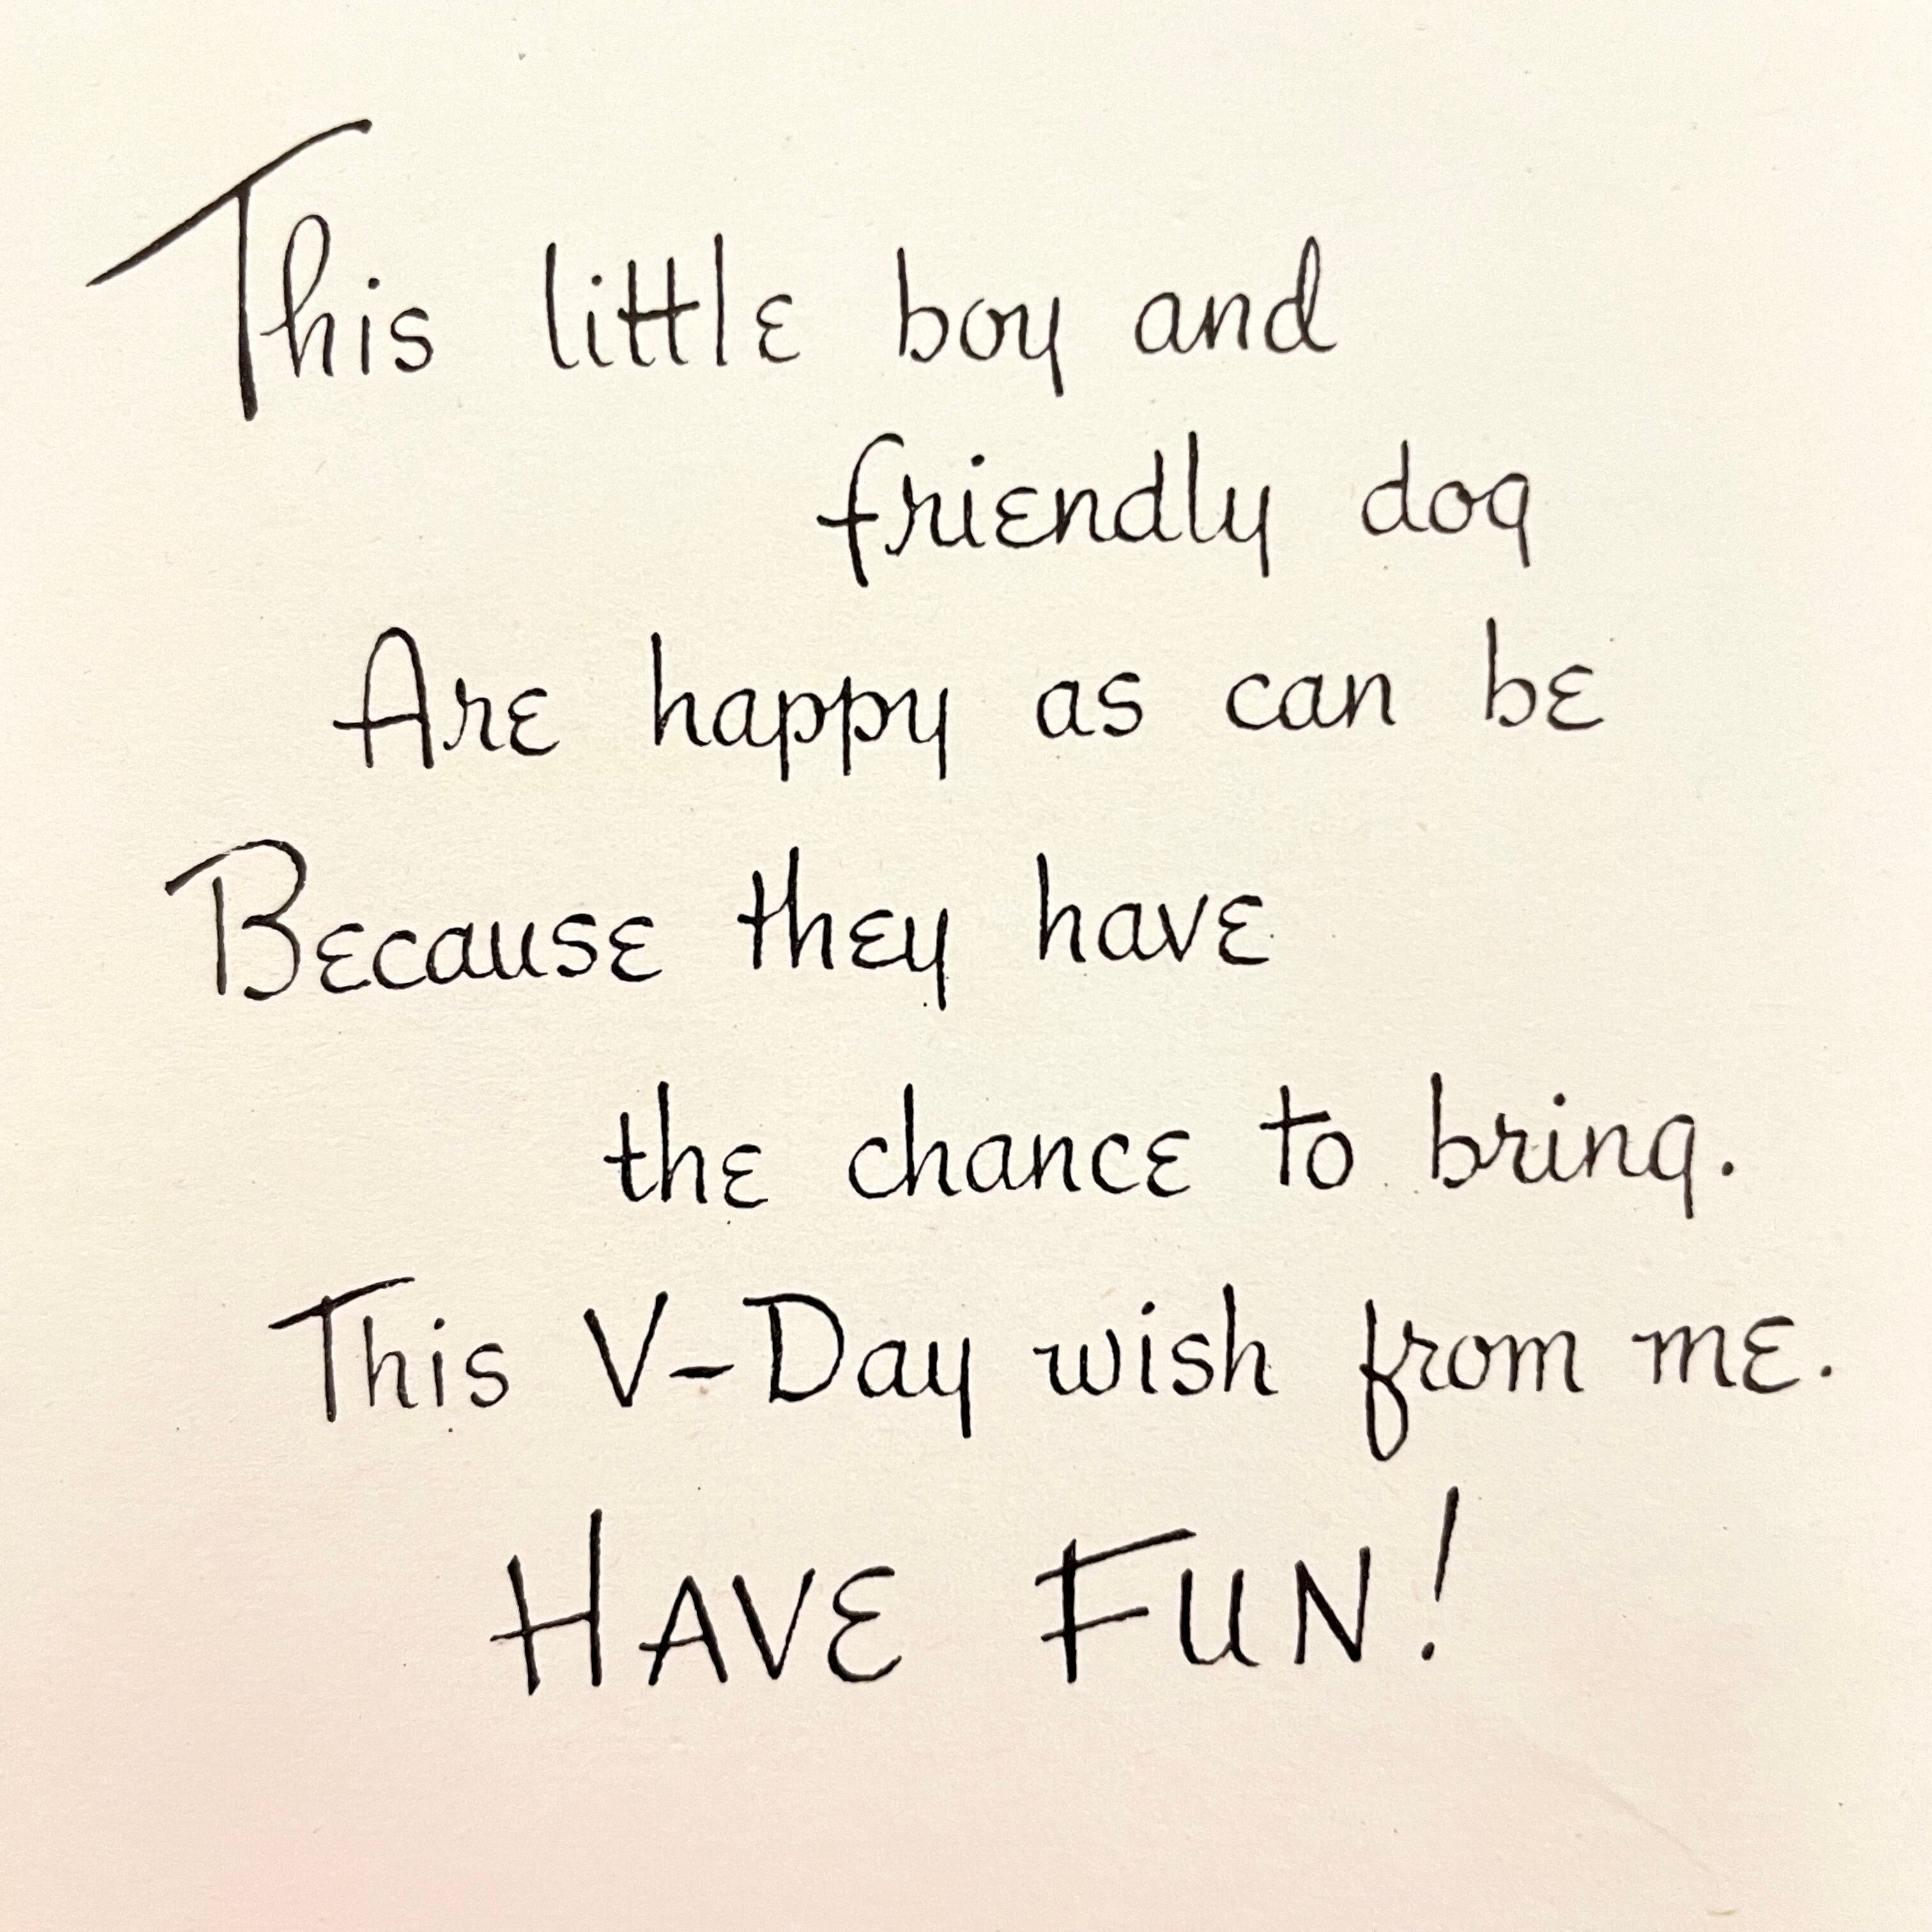 This little boy and
friendly dog
Are happy as can be
Because they have
the chance to bring.
This V-Day wish from me.
HAVE FUN!